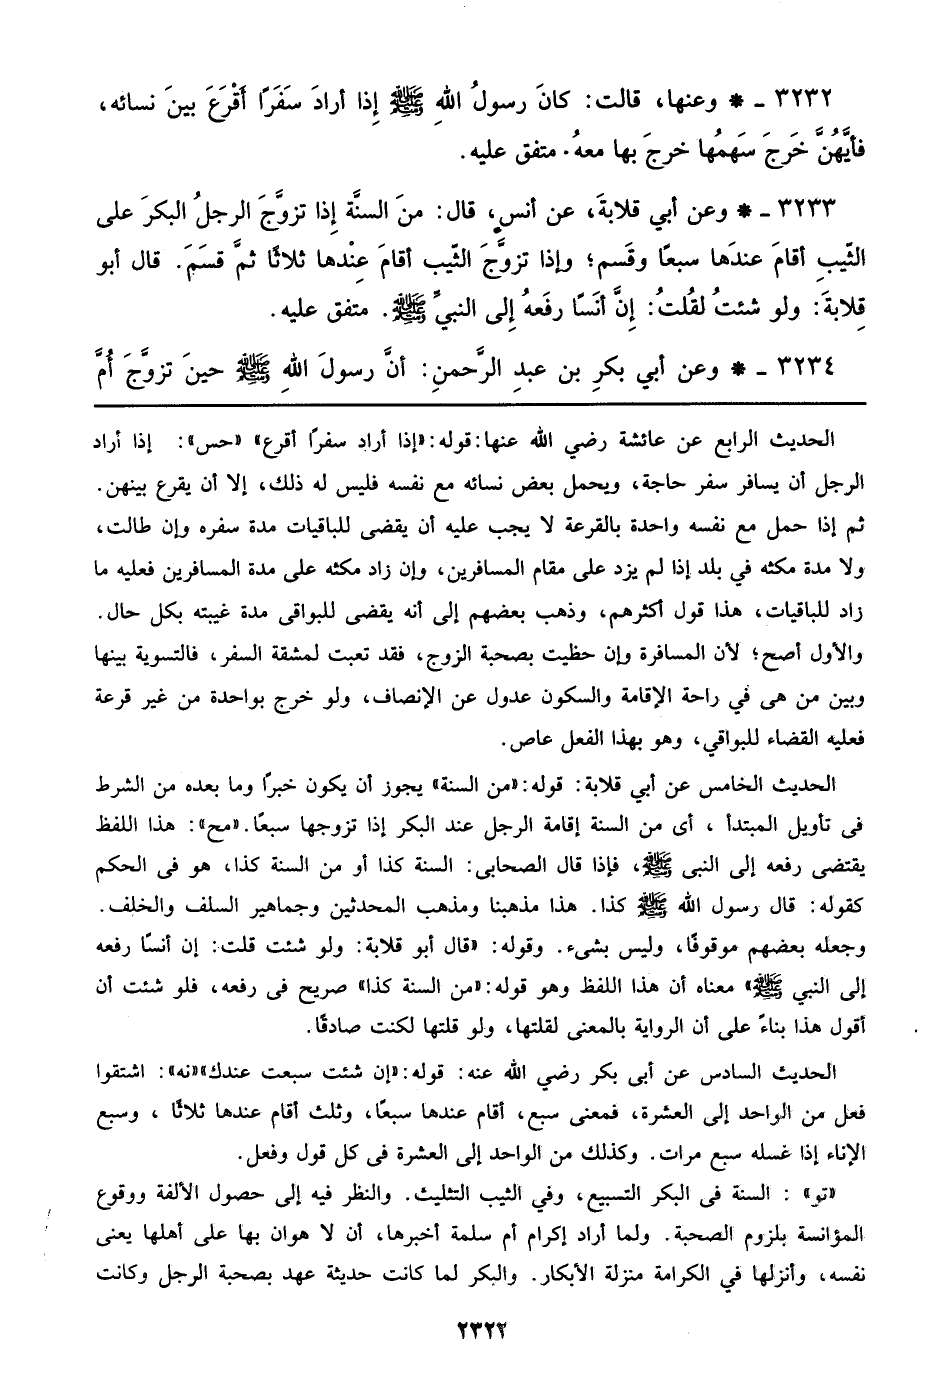 ٣٢٣٢ ـ * وعنها، قالت: كانَ رسولُ اللهِ ﷺ إِذا أرادَ سَفَرًا أَقْرَعَ بينَ نسائه،
فأيَّهُنَّ خَرجَ سَهمُها خرجَ بها معهُ. متفق عليه.
٣٢٣٣ ـ * وعن أبي قلابةَ، عن أنسٍ، قال: منَ السنَّة إِذا تزوَّجَ الرجلُ البكرَ على
الثّيبِ أقامَ عندَها سبعًا وقَسم؛ وإذا تزوَّجَ الثّيب أقامَ عِنْدها ثلاثًا ثمَّ قسَمَ. قال أبو
قِلابةَ: ولو شئتُ لقُلتُ: إِنَّ أنَسًا رفَعهُ إِلى النبيِّ ﷺ. متفق عليه.
٣٢٣٤ ـ * وعن أبي بكرِ بن عبدِ الرَّحمنِ: أنَّ رسولَ اللهِ ﷺ حينَ تزوَّجَ أُمَّ
الحديث الرابع عن عائشة رضي الله عنها: قوله: «إذا أراد سفرًا أقرع» «حس»: إذا أراد
الرجل أن يسافر سفر حاجة، ويحمل بعض نسائه مع نفسه فليس له ذلك، إلا أن يقرع بينهن.
ثم إذا حمل مع نفسه واحدة بالقرعة لا يجب عليه أن يقضى للباقيات مدة سفره وإن طالت،
ولا مدة مكثه في بلد إذا لم يزد على مقام المسافرين، وإن زاد مكثه على مدة المسافرين فعليه ما
زاد للباقيات، هذا قول أكثرهم، وذهب بعضهم إلى أنه يقضى للبواقى مدة غيبته بكل حال.
والأول أصح؛ لأن المسافرة وإن حظيت بصحبة الزوج، فقد تعبت لمشقة السفر، فالتسوية بينها
وبين من هى في راحة الإقامة والسكون عدول عن الإنصاف، ولو خرج بواحدة من غير قرعة
فعليه القضاء للبواقي، وهو بهذا الفعل عاص.
الحديث الخامس عن أبي قلابة: قوله: «من السنة» يجوز أن يكون خبرًا وما بعده من الشرط
فى تأويل المبتدأ ، أى من السنة إقامة الرجل عند البكر إذا تزوجها سبعًا. «مح»: هذا اللفظ
يقتضى رفعه إلى النبى ﷺ، فإذا قال الصحابى: السنة كذا أو من السنة كذا، هو فى الحكم
كقوله: قال رسول الله ﷺ كذا. هذا مذهبنا ومذهب المحدثين وجماهير السلف والخلف.
وجعله بعضهم موقوفًا، وليس بشىء. وقوله: «قال أبو قلابة: ولو شئت قلت: إن أنسًا رفعه
إلى النبي ﷺ» معناه أن هذا اللفظ وهو قوله: «من السنة كذا» صريح فى رفعه، فلو شئت أن
أقول هذا بناءً على أن الرواية بالمعنى لقلتها، ولو قلتها لكنت صادقًا.
الحديث السادس عن أبى بكر رضي الله عنه: قوله: «إن شئت سبعت عندك» «نه»: اشتقوا
فعل من الواحد إلى العشرة، فمعنى سبع، أقام عندها سبعًا، وثلث أقام عندها ثلاثًا ، وسبع
الإناء إذا غسله سبع مرات. وكذلك من الواحد إلى العشرة فى كل قول وفعل.
«تو» : السنة فى البكر التسبيع، وفي الثيب التثليث. والنظر فيه إلى حصول الألفة ووقوع
المؤانسة بلزوم الصحبة. ولما أراد إكرام أم سلمة أخبرها، أن لا هوان بها على أهلها يعنى
نفسه، وأنزلها في الكرامة منزلة الأبكار. والبكر لما كانت حديثة عهد بصحبة الرجل وكانت
٢٣٢٢